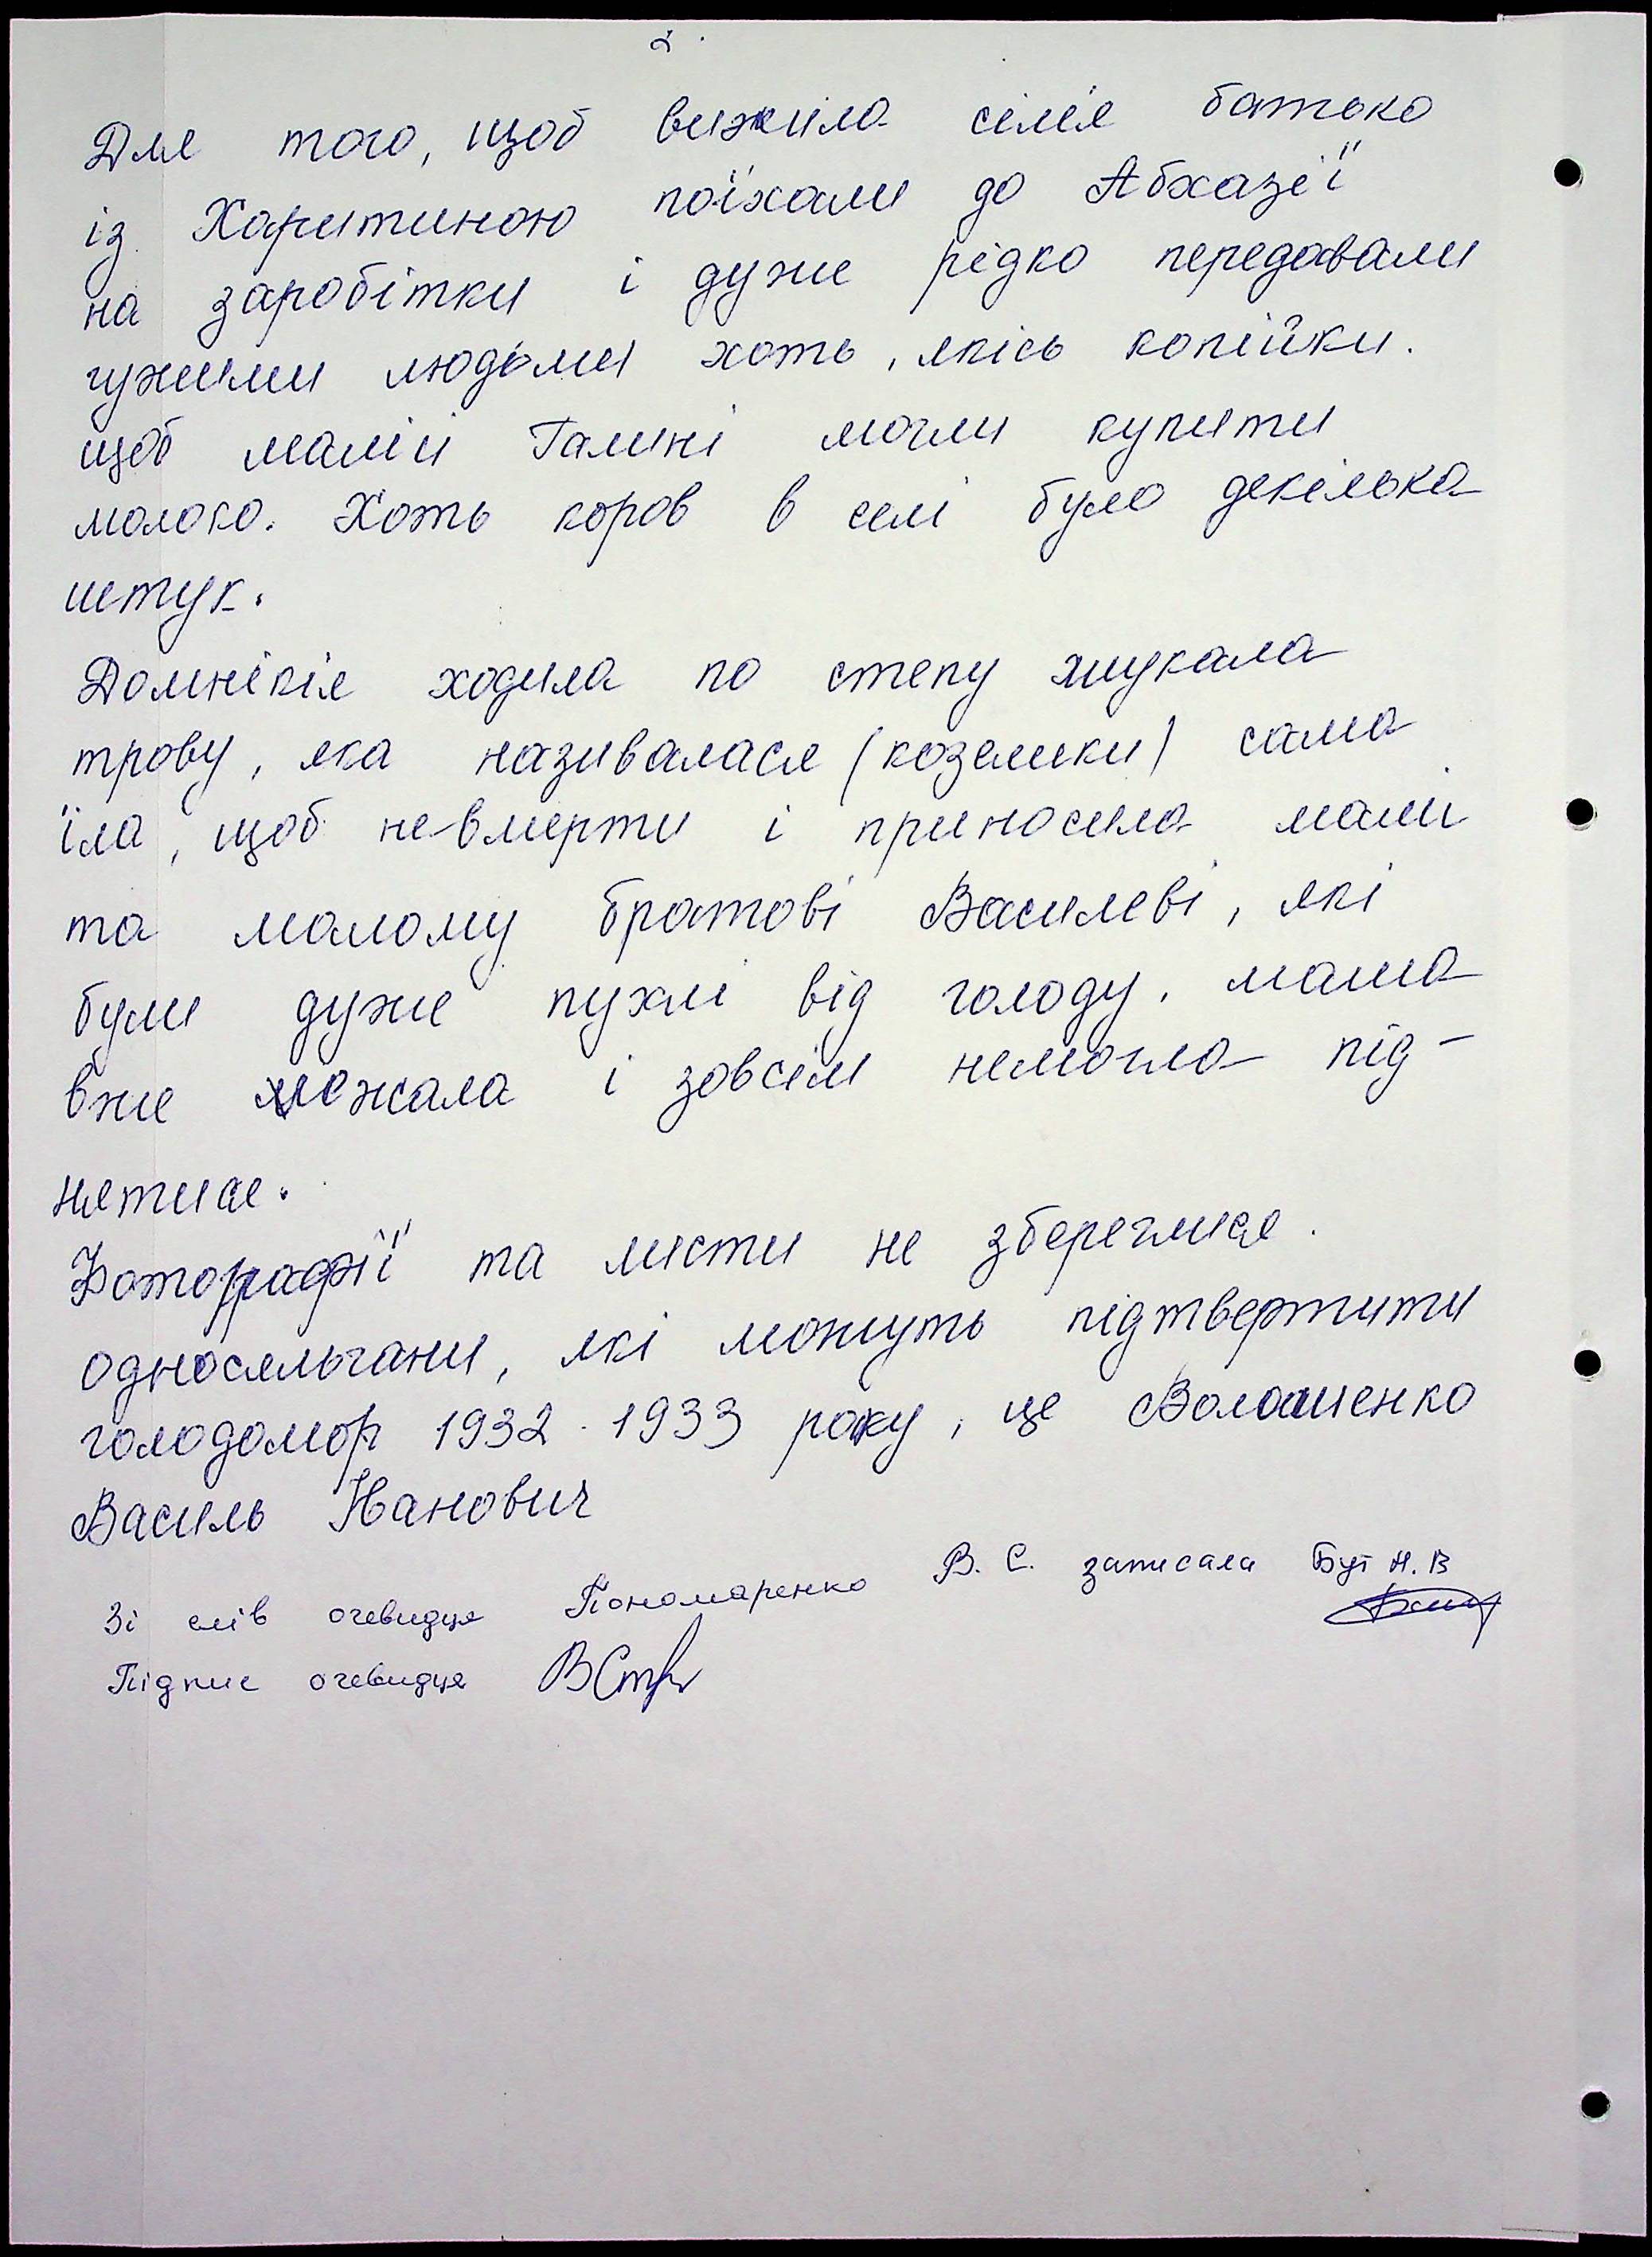 2.
Для того, щоб вижила сімія батько
із Харитиною поїхали до Абхазії
на заробітки і дуже рідко передавали
чужими людьми хоть, якісь копійки.
щоб малій Галині могли купити
молоко. Хоть коров в селі було декілька
штук.
Домнікія ходила по степу шукала
трову, яка називалася (козелики) сама
їла, щоб не вмерти і приносила мамі
та малому братові Василеві, які
були дуже пухлі від голоду, мама
вже лежала і зовсім немогла під-
нятися.
Фотографії та листи не збереглися.
односельчани, які можуть підтвертити
голодомор 1932 - 1933 року, це Волошенко
Василь Іванович
Зі слів очевидця Пономаренко В. С. записала Бут Н. В
Підпис очевидця